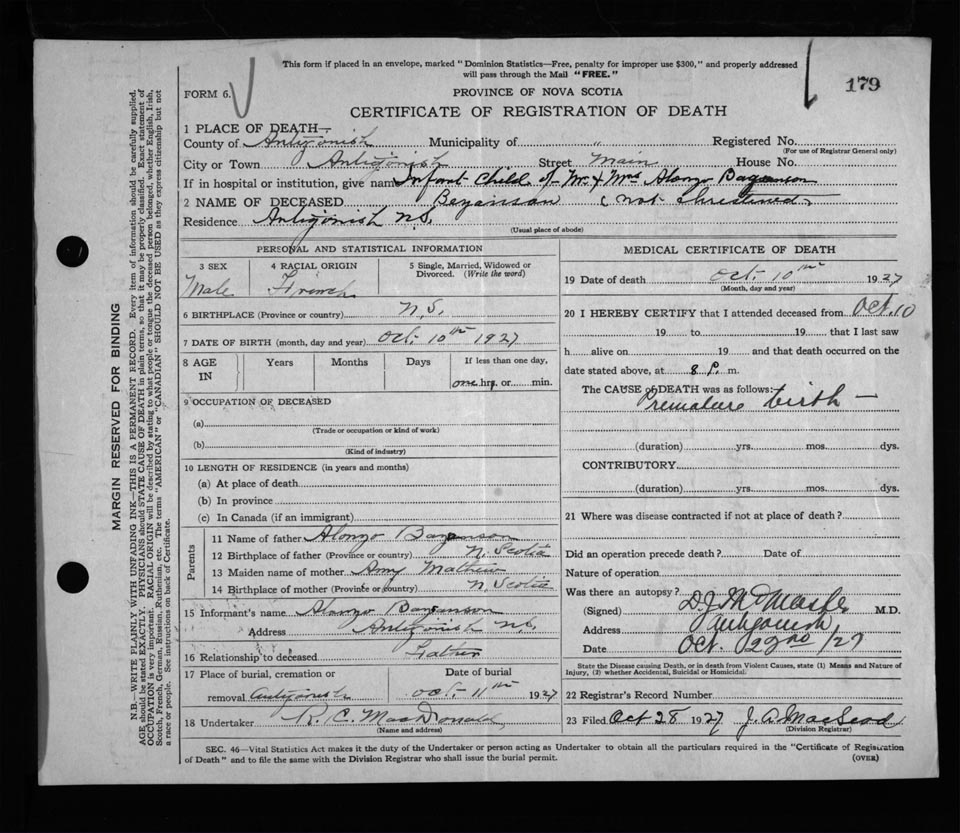 This form if placed in an envelope, marked "Dominion Statistics—Free, penalty for improper use $300," and properly addressed
will pass through the Mail "FREE."
179
FORM 6.
PROVINCE OF NOVA SCOTIA
CERTIFICATE OF REGISTRATION OF DEATH
1 PLACE OF DEATH—
County of Antigonish Municipality of " Registered No.
(For use of Registrar General only)
City or Town Antigonish Street Main House No.
If in hospital or institution, give name Infant Child of Mr. & Mrs Alonzo
2 NAME OF DECEASED Beyanson (not christined)
Residence Antigonish N.S.
(Usual place of abode)
PERSONAL AND STATISTICAL INFORMATION
3 SEX 4 RACIAL ORIGIN 5 Single, Married, Widowed or
Divorced. (Write the word)
Male French
6 BIRTHPLACE (Province or country) N.S.
7 DATE OF BIRTH (month, day and year) Oct. 10th 1927
8 AGE IN Years Months Days If less than one day,
one hrs. or min.
9 OCCUPATION OF DECEASED
(a)
(Trade or occupation or kind of work)
(b)
(Kind of industry)
10 LENGTH OF RESIDENCE (in years and months)
(a) At place of death
(b) In province
(c) In Canada (if an immigrant)
Parents
11 Name of father Alonzo
12 Birthplace of father (Province or country) N. Scotia
13 Maiden name of mother Amy Mathew
14 Birthplace of mother (Province or country) N. Scotia
15 Informant's name Alonzo
Address Antigonish N.S.
16 Relationship to deceased Father
17 Place of burial, cremation or Date of burial
removal Antigonish Oct 11th 1927
18 Undertaker R. C. MacDonald
(Name and address)
MEDICAL CERTIFICATE OF DEATH
19 Date of death Oct. 10th 1927
(Month, day and year)
20 I HEREBY CERTIFY that I attended deceased from Oct. 10
19 to 19 that I last saw
h alive on 19 and that death occurred on the
date stated above, at 8 P. m.
The CAUSE of DEATH was as follows:
Premature birth —
(duration) yrs. mos. dys.
CONTRIBUTORY
(duration) yrs. mos. dys.
21 Where was disease contracted if not at place of death?
Did an operation precede death? Date of
Nature of operation
Was there an autopsy?
(Signed) D. J. McMaster M.D.
Address Antigonish
Date Oct. 22nd /27
State the Disease causing Death, or in death from Violent Causes, state (1) Means and Nature of
Injury, (2) whether Accidental, Suicidal or Homicidal.
22 Registrar's Record Number
23 Filed Oct 28 1927 J. A. MacLeod
(Division Registrar)
SEC. 46—Vital Statistics Act makes it the duty of the Undertaker or person acting as Undertaker to obtain all the particulars required in the "Certificate of Registration
of Death" and to file the same with the Division Registrar who shall issue the burial permit.
(OVER)
MARGIN RESERVED FOR BINDING
N.B.—WRITE PLAINLY, WITH UNFADING INK—THIS IS A PERMANENT RECORD. Every item of information should be carefully supplied.
AGE should be stated EXACTLY. PHYSICIANS should STATE CAUSE OF DEATH in plain terms, so that it may be properly classified. Exact statement of
OCCUPATION is very important. RACIAL ORIGIN will be described by stating to what people or tongue the deceased person belonged, whether English, Irish,
Scotch, French, German, Russian, Ruthenian, etc. The terms "AMERICAN" or "CANADIAN" SHOULD NOT BE USED as they express citizenship but not
a race or people. See instructions on back of Certificate.